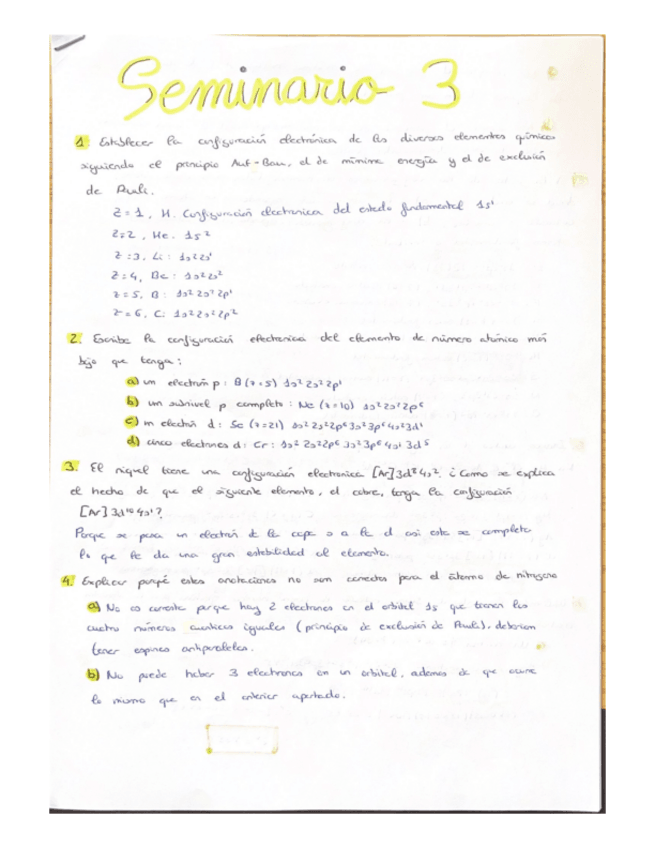 Seminario 3
1. Establecer la configuración electrónica de los diversos elementos químicos
siguiendo el principio Auf-Bau, el de mínima energía y el de exclusión
de Pauli.
Z=1, H. Configuración electronica del estado fundamental 1s¹
Z=2, He. 1s²
Z=3, Li: 1s²2s¹
Z=4, Be: 1s²2s²
Z=5, B: 1s²2s²2p¹
Z=6, C: 1s²2s²2p²
2. Escribe la configuración electronica del elemento de número atómico más
bajo que tenga:
a) un electrón p: B (z=5) 1s²2s²2p¹
b) un subnivel p completo: Ne (z=10) 1s²2s²2p⁶
c) un electrón d: Sc (z=21) 1s²2s²2p⁶3s²3p⁶4s²3d¹
d) cinco electrones d: Cr: 1s²2s²2p⁶3s²3p⁶4s¹3d⁵
3. El niquel tiene una configuración electronica [Ar]3d⁸4s². ¿Como se explica
el hecho de que el siguiente elemento, el cobre, tenga la configuración
[Ar]3d¹⁰4s¹?
Porque se pasa un electrón de la capa s a la d así esta se completa
lo que le da una gran estabilidad al elemento.
4. Explicar porqué estas anotaciones no son correctas para el átomo de nitrogeno
a) No es correcta porque hay 2 electrones en el orbital 1s que tienen los
cuatro números cuanticos iguales (principio de exclusión de Pauli). deberian
tener espines antiparalelos.
b) No puede haber 3 electrones en un orbital, ademas de que ocurre
lo mismo que en el anterior apartado.